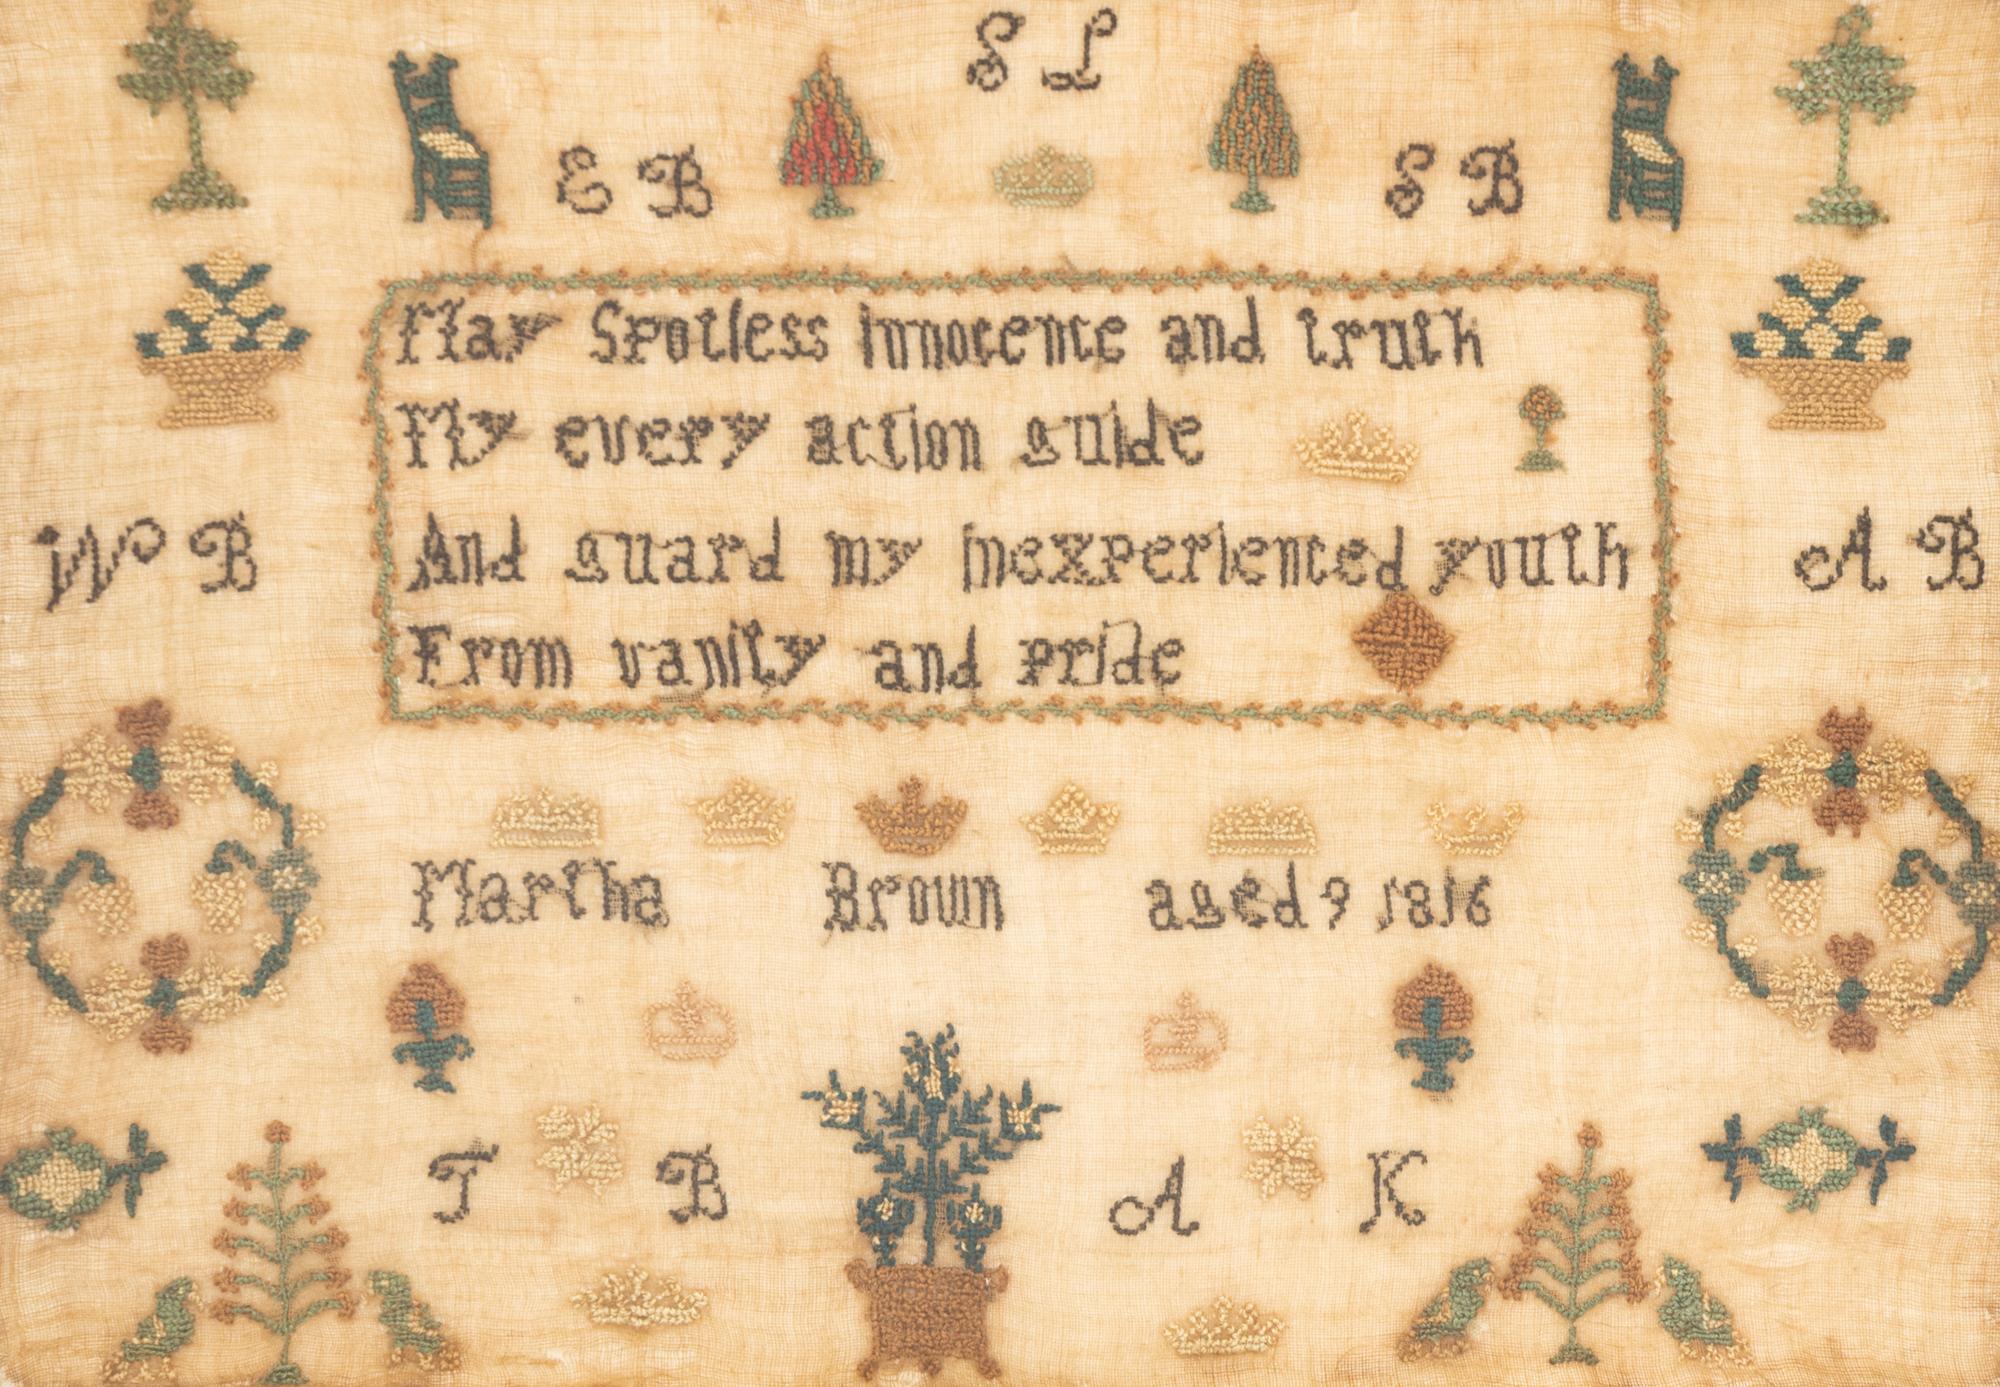 S L
E B
S B
May Spotless innocence and truth
My every action guide
And guard my inexperienced youth
From vanity and pride
W B
A B
Martha Brown aged 9 1816
T B
A K